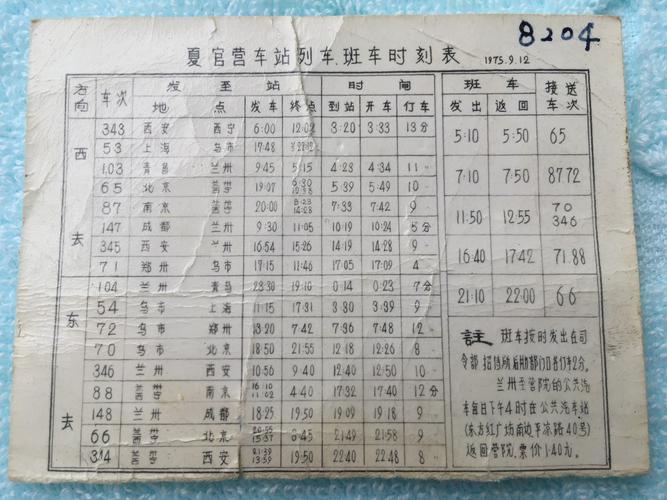 8204
夏官营车站列车、班车时刻表 1975.9.12
方向 车次 发至站 时间
地点 发车 终点 到站 开车 行车
西去
343 西安 西宁 6:00 12:02 3:20 3:33 13分
53 上海 乌市 17:48
103 青岛 兰州 9:45 5:15 4:23 4:34 11〃
65 北京 西宁 19:07 6:30 5:39 5:49 10
87 南京 西宁 20:00 8:23 14:28 7:33 7:42 9
147 成都 兰州 9:30 11:05 10:19 10:24 5分
345 西安 兰州 16:54 15:26 14:19 14:28 9〃
71 郑州 乌市 17:15 11:46 17:05 17:09 4
东去
104 兰州 青岛 23:30 19:10 0:14 0:23 7分
54 乌市 上海 11:15 17:31 3:30 3:39 9〃
72 乌市 郑州 13:20 7:42 7:36 7:48 12〃
70 乌市 北京 18:50 21:55 12:18 12:26 8〃
346 兰州 西安 10:56 9:40 12:40 12:50 10〃
88 西宁 南京 16:10 11:02 4:40 17:32 17:40 12分
148 兰州 成都 18:25 19:50 19:09 19:18 9〃
66 西宁 北京 20:55 15:37 8:45 21:49 21:58 9〃
344 西宁 西安 21:39 13:59 19:50 22:40 22:48 8〃
班车 接送车次
发出 返回
5:10 5:50 65
7:10 7:50 87.72
11:50 12:55 70 346
16:40 17:42 71.88
21:10 22:00 66
註 班车按时发出在司
令部 招待所 后勤部门口各停2分。
兰州至营院的公共汽
车每日下午4时在公共汽车站
(东方红广场南边平凉路40号)
返回营院，票价1.40元。